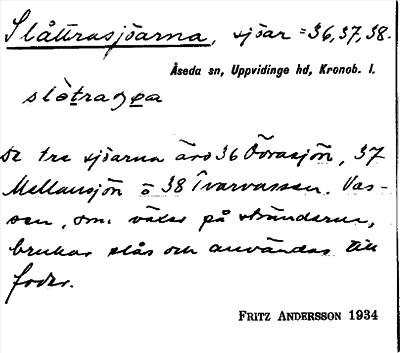 Slåttrasjöarna, sjöar = 36, 37, 38.
Åseda sn, Uppvidinge hd, Kronob. l.
De tre sjöarna äro 36 Övrasjön, 37
Mellansjön o 38 Tvarvassen. Vas-
sen, som växer på stränderna,
brukar slås och användas till
foder.
FRITZ ANDERSSON 1934